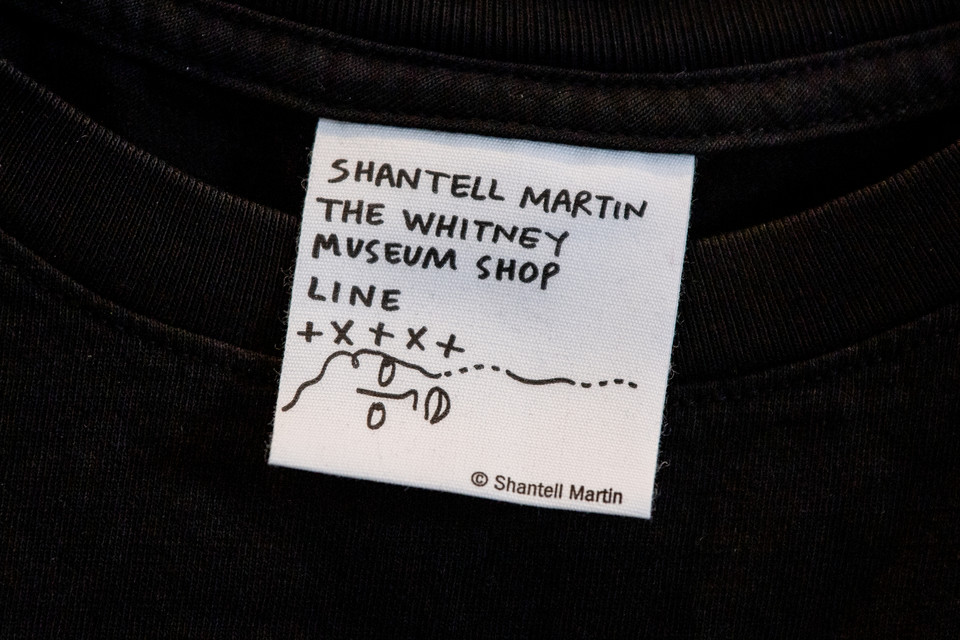 SHANTELL MARTIN
THE WHITNEY
MUSEUM SHOP
LINE
+ X + X +
© Shantell Martin